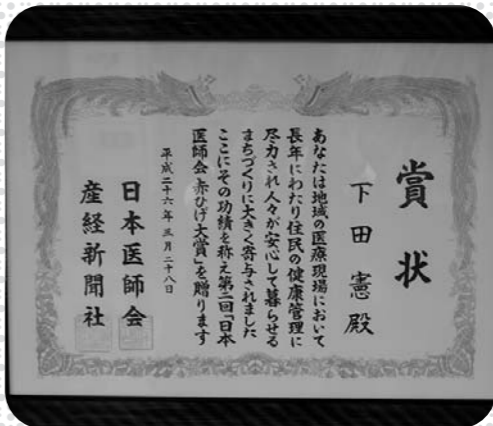 賞状
下田憲殿
あなたは地域の医療現場において
長年にわたり住民の健康管理に
尽力され人々が安心して暮らせる
まちづくりに大きく寄与されました
ここにその功績を称え第二回「日本
医師会 赤ひげ大賞」を贈ります
平成二十六年三月二十八日
日本医師会
産経新聞社